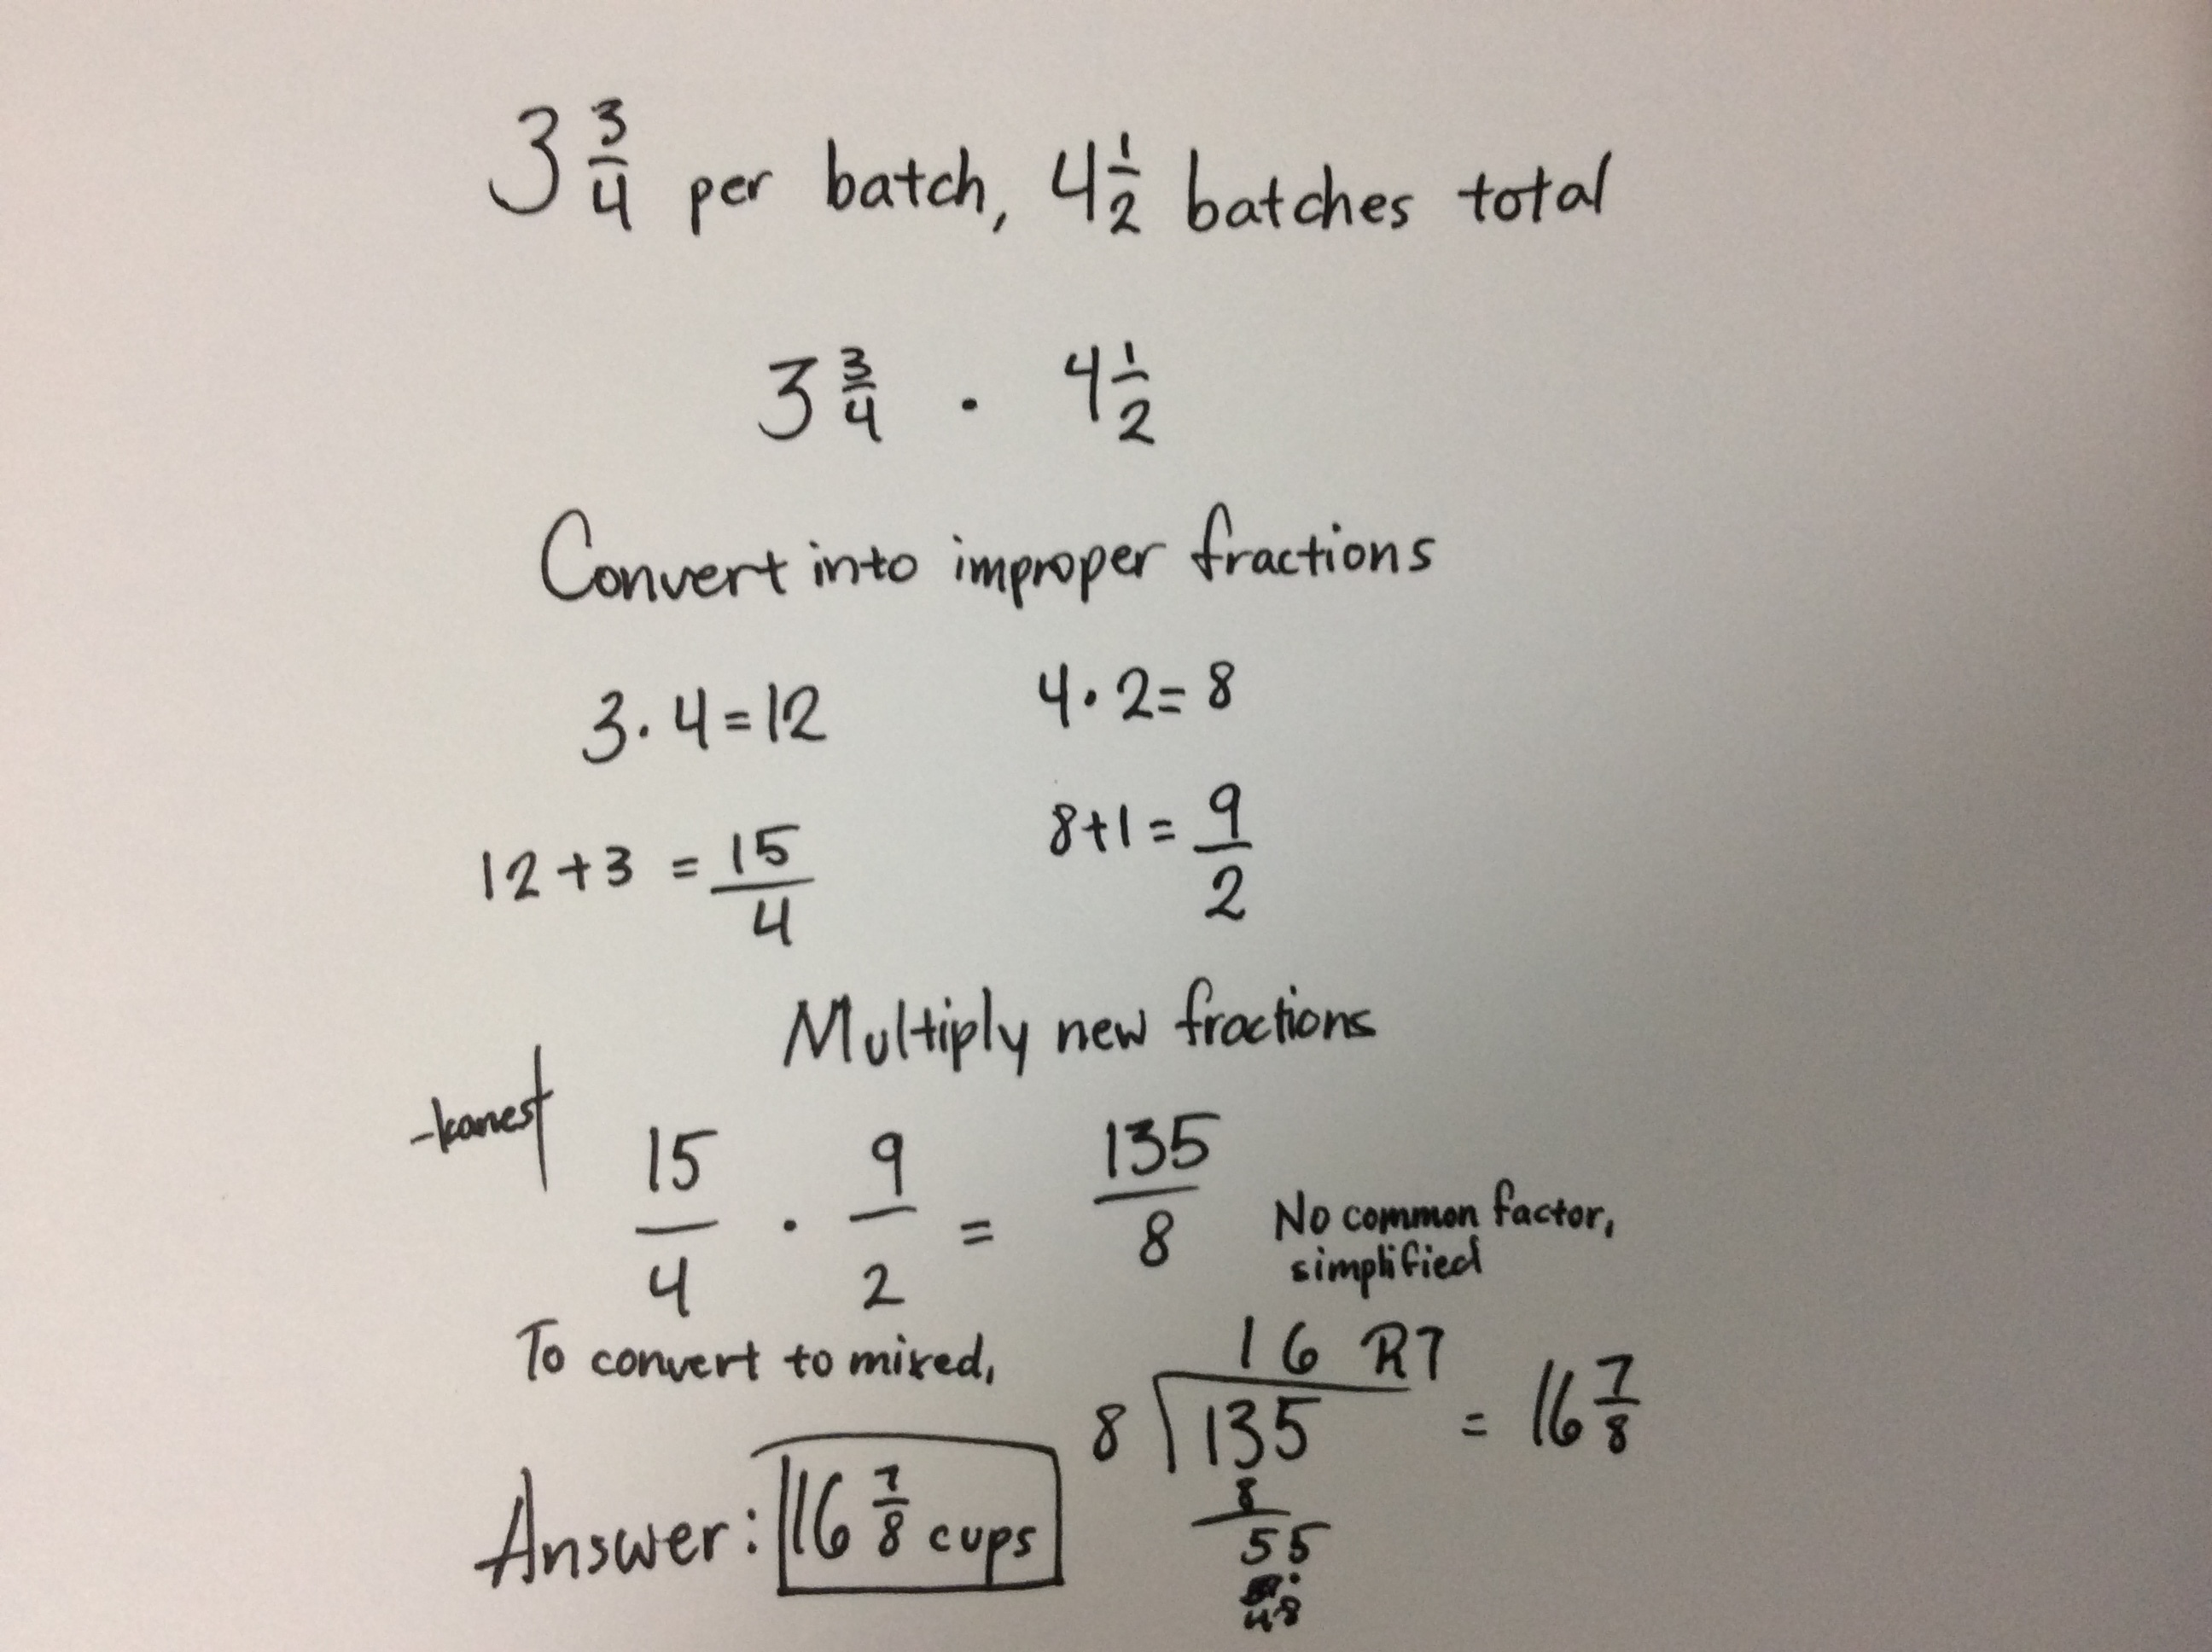 3 3/4 per batch, 4 1/2 batches total
3 3/4 · 4 1/2
Convert into improper fractions
3 · 4 = 12
4 · 2 = 8
12 + 3 = 15/4
8 + 1 = 9/2
Multiply new fractions
15/4 · 9/2 = 135/8
No common factor,
simplified
To convert to mixed,
16 R7
8 135 = 16 7/8
8
55
48
Answer: 16 7/8 cups